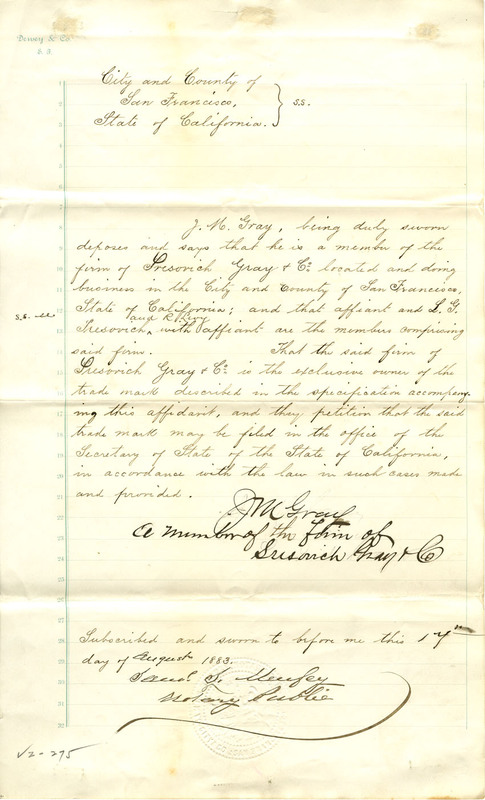 Dewey & Co.
S. F.
City and County of
San Francisco,
State of California.
} s.s.
J. M. Gray, being duly sworn
deposes and says that he is a member of the
firm of Sresovich Gray & Co. located and doing
business in the City and County of San Francisco,
State of California; and that affiant and L. G.
Sresovich, with affiant are the members comprising
said firm. That the said firm of
Sresovich Gray & Co. is the exclusive owner of the
trade mark described in the specification accompany-
ing this affidavit, and they petition that the said
trade mark may be filed in the office of the
Secretary of State of the State of California,
in accordance with the law in such cases made
and provided.
J M Gray
a member of the firm of
Sresovich Gray & Co
Subscribed and sworn to before me this
day of August 1883.
Notary Public
V2-275